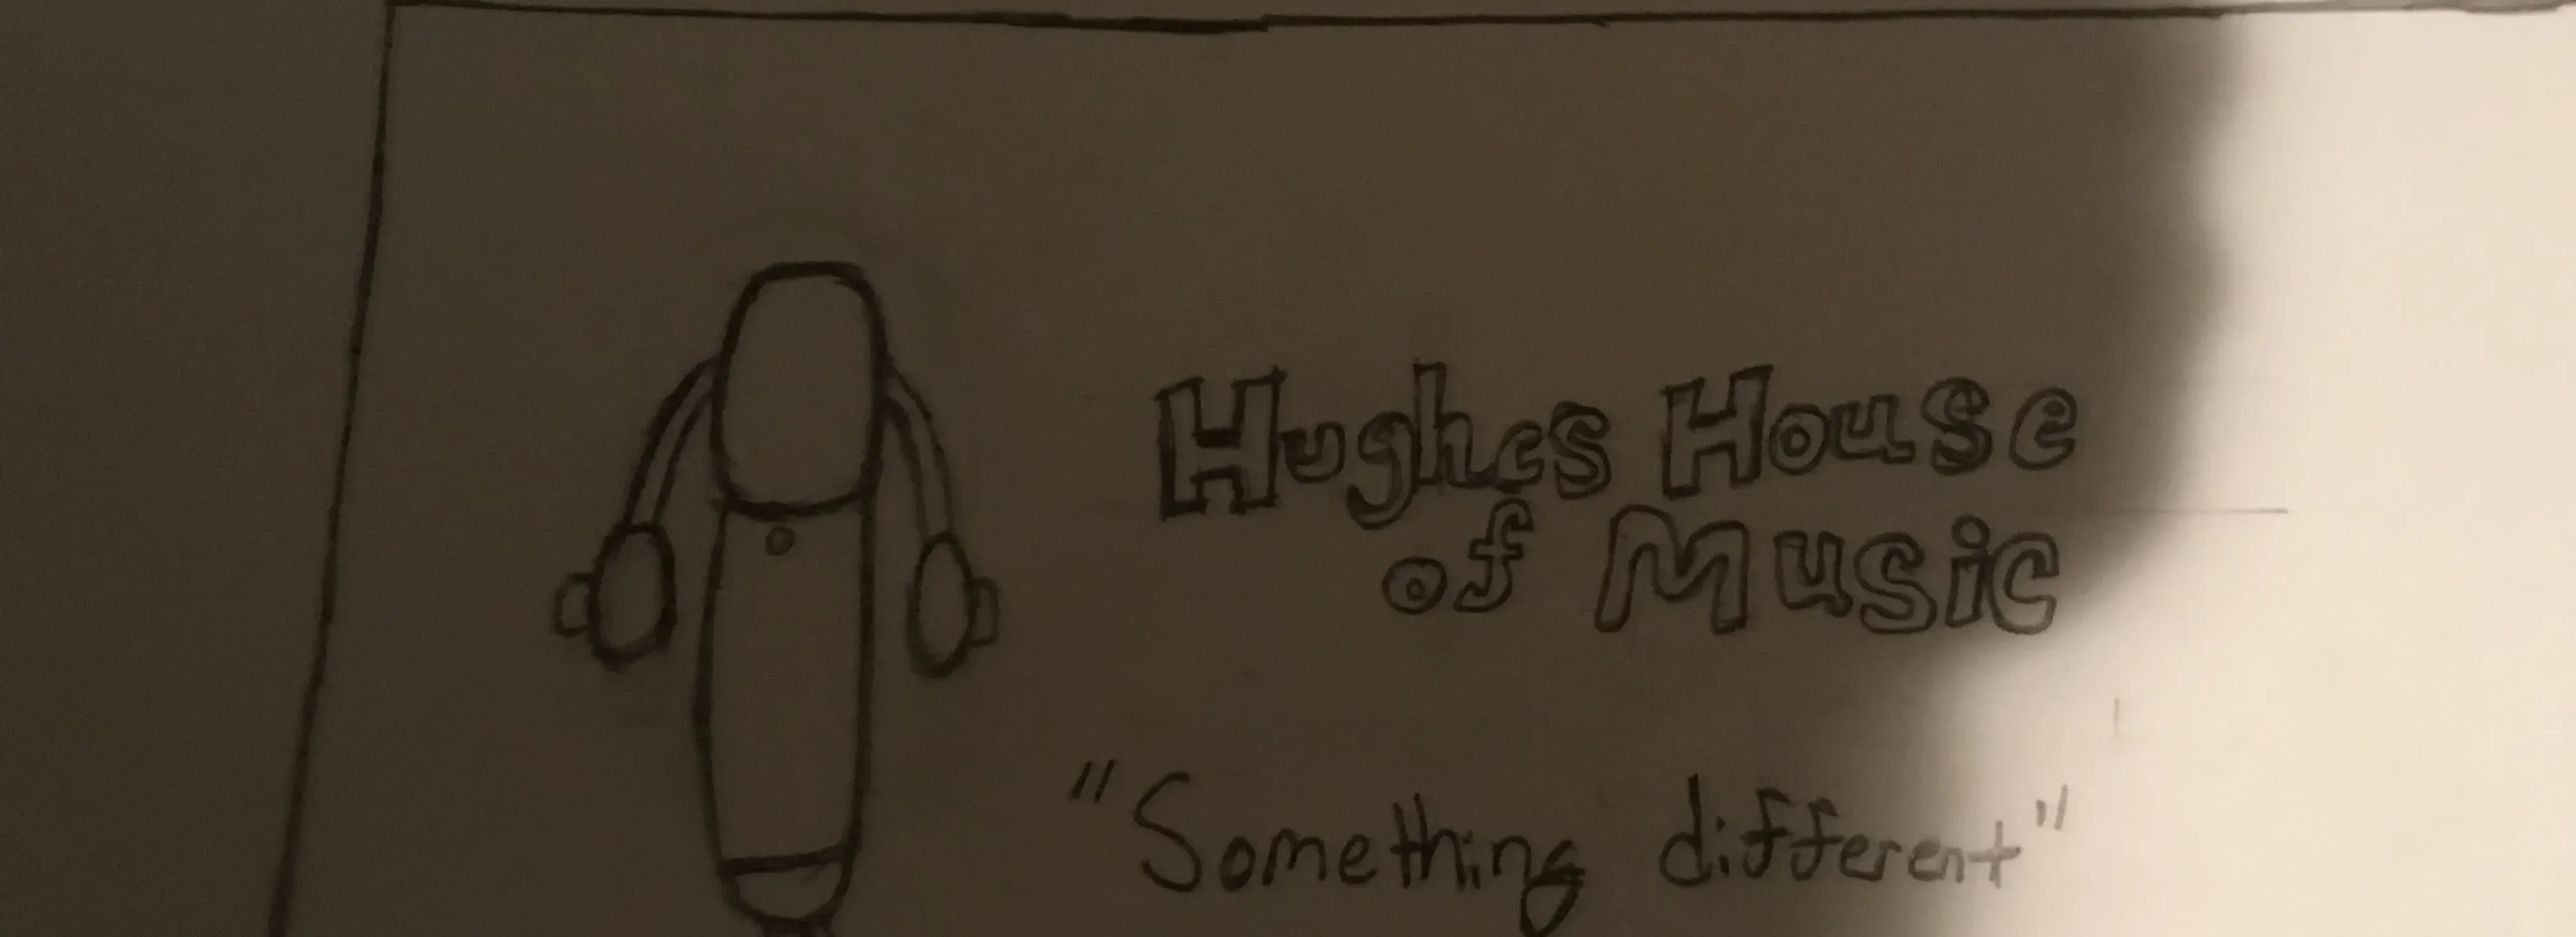 Hughes House
of Music
"Something different"